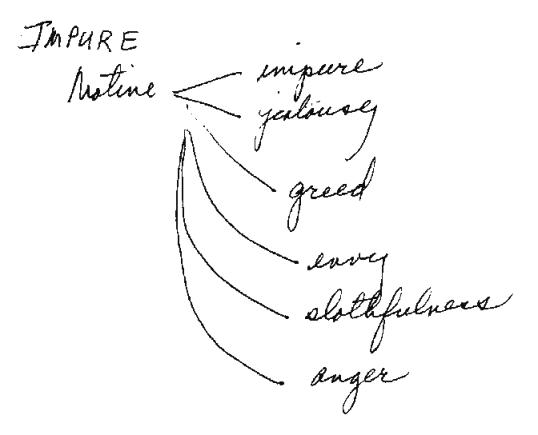 IMPURE
Motive
impure
jealousy
greed
envy
slothfulness
anger